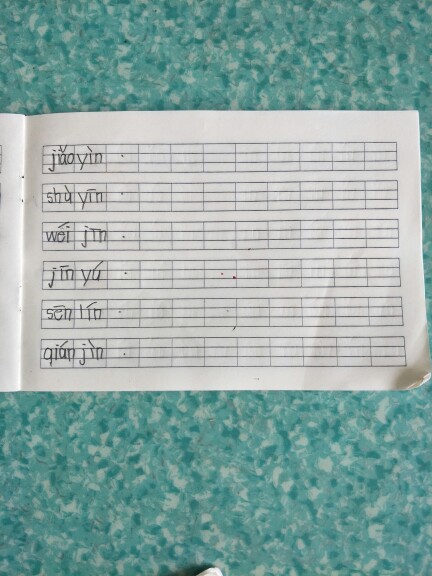 jiǎo yìn
shù yīn
wéi jīn
jīn yú
sēn lín
qián jìn